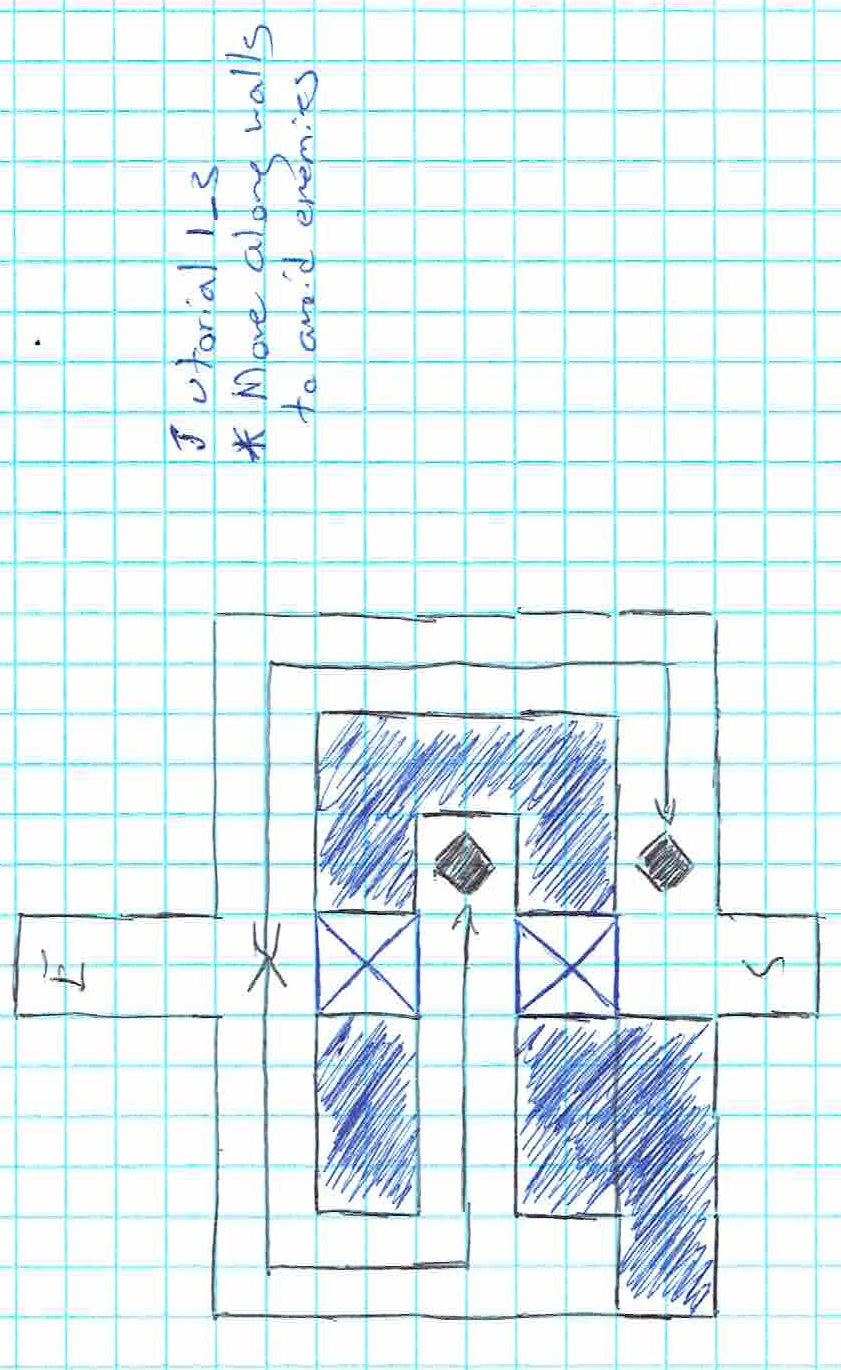 Tutorial 1-3
* Move along walls
to avoid enemies
E
S